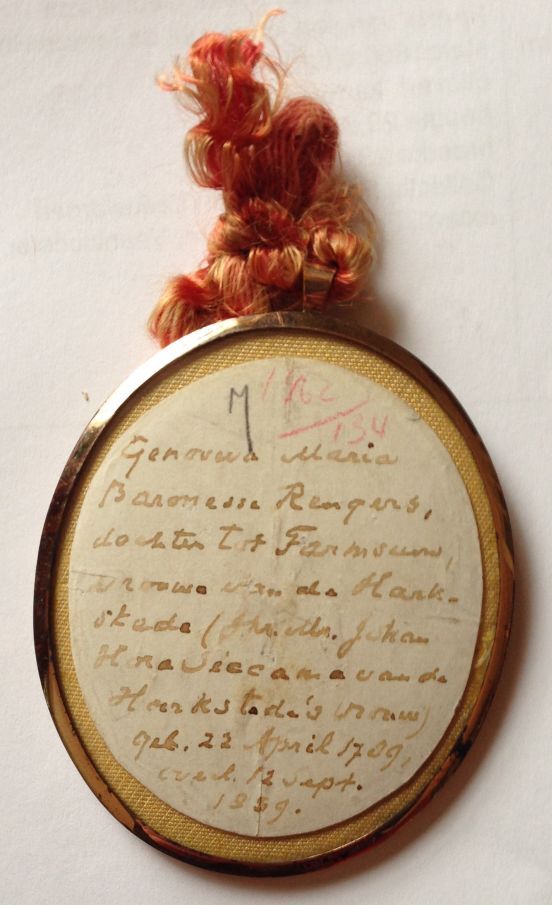 M 1762/134
Genoveva Maria
Baronesse Rengers,
dochter tot Farmsum,
vrouwe van de Hark-
stede (Jhr. Mr. Johan
Hora Siccama van de
Harkstede's vrouw)
geb. 22 April 1789,
overl. 12 Sept.
1859.